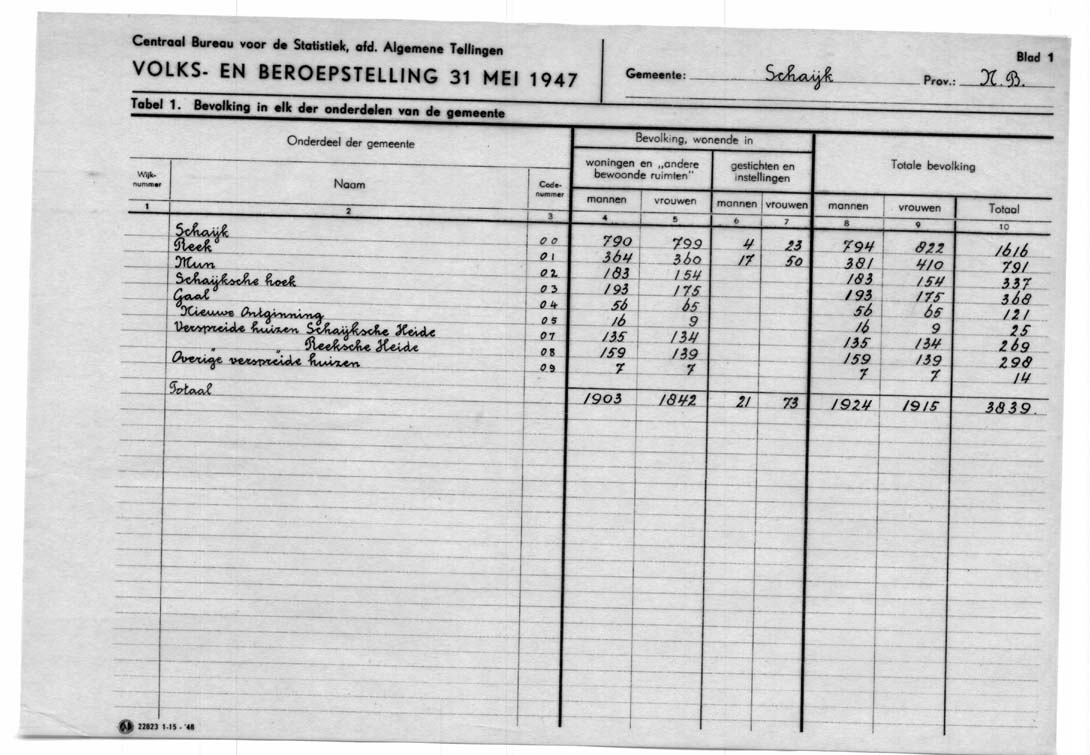 Centraal Bureau voor de Statistiek, afd. Algemene Tellingen
VOLKS- EN BEROEPSTELLING 31 MEI 1947
Gemeente: Schaijk Prov.: N.B.
Blad 1
Tabel 1. Bevolking in elk der onderdelen van de gemeente
Onderdeel der gemeente
Bevolking, wonende in
Totale bevolking
woningen en „andere bewoonde ruimten"
gestichten en instellingen
Wijk-nummer Naam Code-nummer mannen vrouwen mannen vrouwen mannen vrouwen Totaal
1 2 3 4 5 6 7 8 9 10
Schaijk 00 790 799 4 23 794 822 1616
Reek 01 364 360 17 50 381 410 791
Mun 02 183 154 183 154 337
Schaijksche hoek 03 193 175 193 175 368
Gaal 04 56 65 56 65 121
Nieuwe Ontginning 05 16 9 16 9 25
Verspreide huizen Schaijksche Heide 07 135 134 135 134 269
Reeksche Heide 08 159 139 159 139 298
Overige verspreide huizen 09 7 7 7 7 14
Totaal 1903 1842 21 73 1924 1915 3839.
22823 1-15-'48